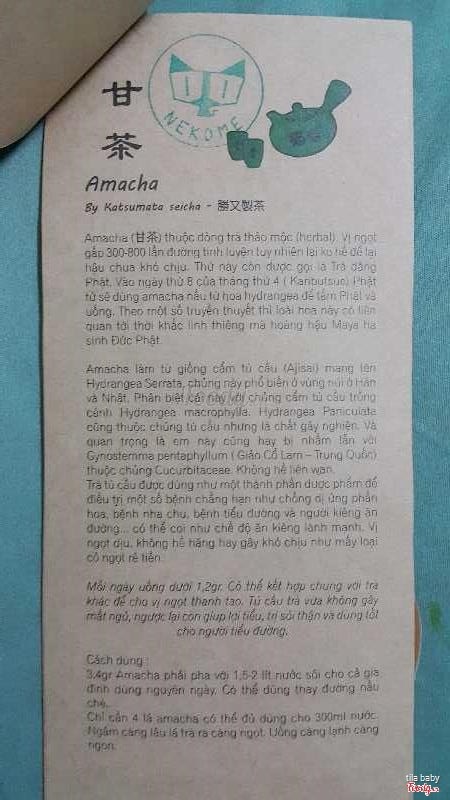 甘茶
NEKOME
Amacha
By Katsumata seicha - 勝又製茶
Amacha (甘茶) thuộc dòng trà thảo mộc (herbal). Vị ngọt
gấp 300-800 lần đường tinh luyện tuy nhiên lại ko hề để lại
hậu chua khó chịu. Thứ này còn được gọi là Trà dâng
Phật. Vào ngày thứ 8 của tháng thứ 4 ( Kanbutsue) Phật
tử sẽ dùng amacha nấu từ hoa hydrangea để tắm Phật và
uống. Theo một số truyền thuyết thì loài hoa này có liên
quan tới thời khắc linh thiêng mà hoàng hậu Maya hạ
sinh Đức Phật.
Amacha làm từ giống cẩm tú cầu (Ajisai) mang tên
Hydrangea Serrata, chủng này phổ biến ở vùng núi ở Hàn
và Nhật. Phân biệt cái này với chủng cẩm tú cầu trồng
cảnh Hydrangea macrophylla. Hydrangea Paniculata
cũng thuộc chủng tú cầu nhưng là chất gây nghiện. Và
quan trọng là em này cũng hay bị nhầm lẫn với
Gynostemma pentaphyllum ( Giảo Cổ Lam – Trung Quốc)
thuộc chủng Cucurbitaceae. Không hề liên quan.
Trà tú cầu được dùng như một thành phần dược phẩm để
điều trị một số bệnh chẳng hạn như chống dị ứng phấn
hoa, bệnh nha chu, bệnh tiểu đường và người kiêng ăn
đường... có thể coi như chế độ ăn kiêng lành mạnh. Vị
ngọt dịu, không hề hăng hay gây khó chịu như mấy loại
cỏ ngọt rẻ tiền.
Mỗi ngày uống dưới 1,2gr. Có thể kết hợp chung với trà
khác để cho vị ngọt thanh tao. Tú cầu trà vừa không gây
mất ngủ, ngược lại còn giúp lợi tiểu, trị sỏi thận và dùng tốt
cho người tiểu đường.
Cách dùng :
3,4gr Amacha phải pha với 1,5-2 lít nước sôi cho cả gia
đình dùng nguyên ngày. Có thể dùng thay đường nấu
chè.
Chỉ cần 4 lá amacha có thể đủ dùng cho 300ml nước.
Ngâm càng lâu lá trà ra càng ngọt. Uống càng lạnh càng
ngon.
tila baby
Foody.vn